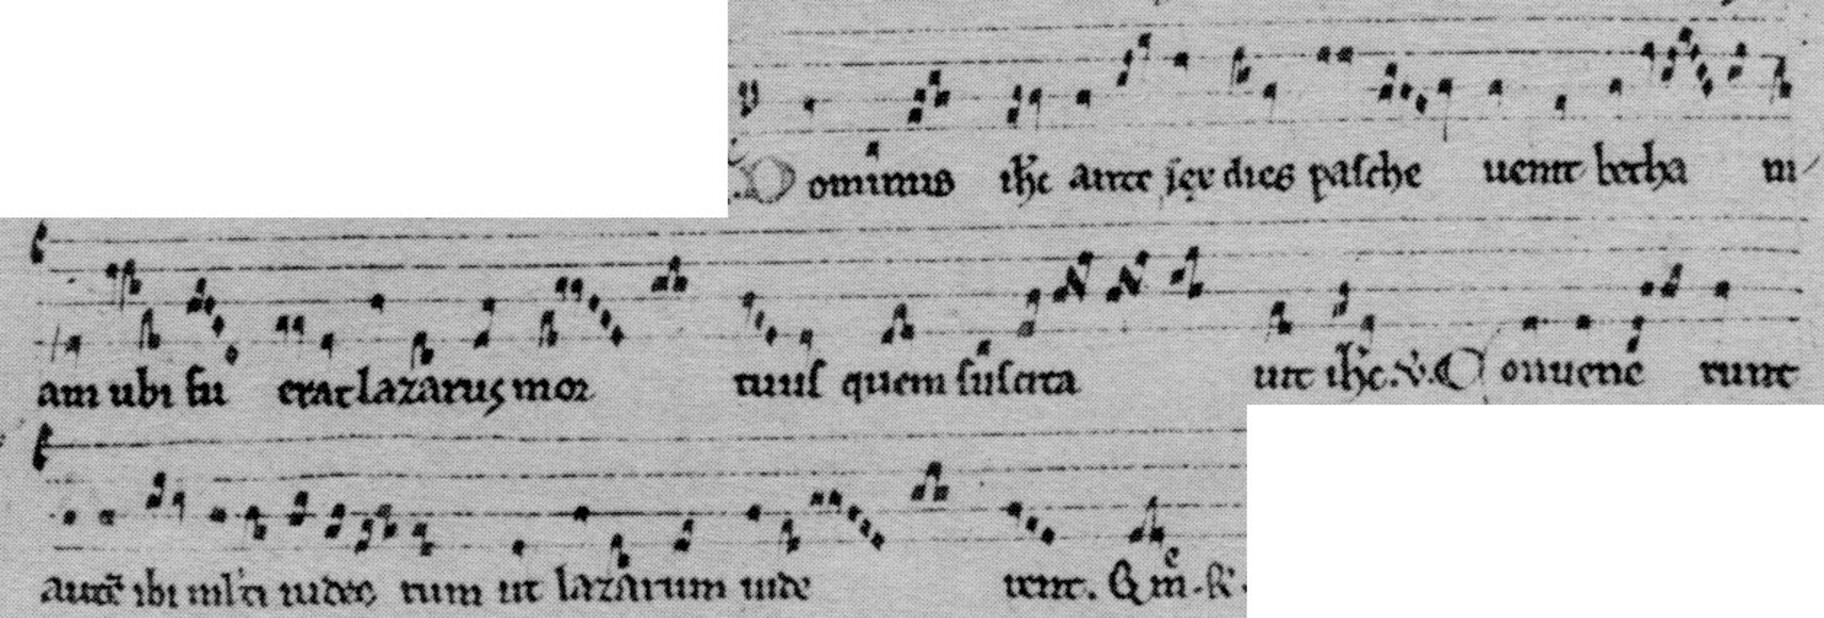 Dominus ihc ante sex dies pasche uenit betha ni
am ubi fu erat lazarus mor tuus quem suscita uit ihc. v. Conuene runt
autē ibi mlti iudeo rum ut lazarum uide rent. Qm. R.